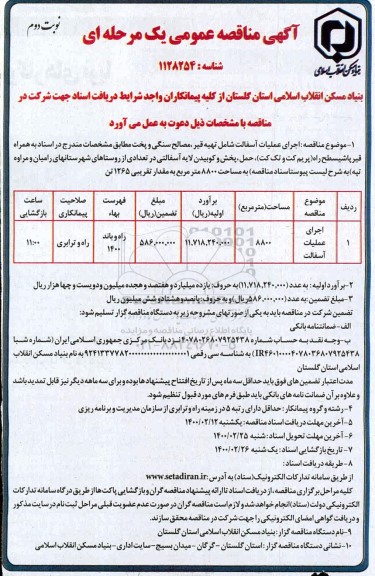 نوبت دوم
آگهی مناقصه عمومی یک مرحله ای
شناسه: ۱۱۲۸۲۵۴
بنیاد مسکن انقلاب اسلامی
بنیاد مسکن انقلاب اسلامی استان گلستان از کلیه پیمانکاران واجد شرایط دریافت اسناد جهت شرکت در
مناقصه با مشخصات ذیل دعوت به عمل می آورد
۱- موضوع مناقصه: اجرای عملیات آسفالت شامل تهیه قیر، مصالح سنگی و پخت مطابق مشخصات مندرج در اسناد به همراه
قیرپاشی سطح راه (پریم کت و تک کت)، حمل، پخش و کوبیدن لایه آسفالتی در تعدادی از روستاهای شهرستانهای رامیان و مراوه
تپه (به شرح لیست پیوست اسناد مناقصه) به مساحت ۸۸۰۰ متر مربع به مقدار تقریبی ۱۲۶۵ تن
ردیف | موضوع مناقصه | مساحت (مترمربع) | برآورد اولیه (ریال) | مبلغ تضمین (ریال) | فهرست بهاء | صلاحیت پیمانکاری | ساعت بازگشایی
۱ | اجرای عملیات آسفالت | ۸۸۰۰ | ۱۱,۷۱۸,۲۴۰,۰۰۰ | ۵۸۶,۰۰۰,۰۰۰ | راه و باند ۱۴۰۰ | راه و ترابری | ۱۱:۰۰
۲- برآورد اولیه: به عدد (۱۱,۷۱۸,۲۴۰,۰۰۰) به حروف: یازده میلیارد و هفتصد و هجده میلیون و دویست و چهل هزار ریال
۳- مبلغ تضمین: به عدد (۵۸۶,۰۰۰,۰۰۰) ریال و به حروف: پانصد و هشتاد و شش میلیون ریال
تضمین شرکت در مناقصه باید به یکی از صورتهای مشروحه زیر به دستگاه مناقصه گزار تسلیم شود:
الف- ضمانتنامه بانکی
ب- وجه نقد به حساب شماره ۴۰۷۸۰۲۶۸۰۷۹۲۵۴۳۸ نزد بانک مرکزی جمهوری اسلامی ایران (شماره شبا
به نام بنیاد مسکن انقلاب
اسلامی استان گلستان
مدت اعتبار تضمین های فوق باید حداقل سه ماه پس از تاریخ افتتاح پیشنهادها بوده و برای سه ماهه دیگر نیز قابل تمدید باشد
و علاوه بر آن ضمانت نامه های بانکی باید طبق فرم های مورد قبول تنظیم شود.
۴- رشته و گروه پیمانکار: حداقل دارای رتبه ۵ در زمینه راه و ترابری از سازمان مدیریت و برنامه ریزی
۵- آخرین مهلت دریافت اسناد مناقصه: یکشنبه ۱۴۰۰/۰۲/۱۲
۶- آخرین مهلت تحویل اسناد: شنبه ۱۴۰۰/۰۲/۲۵
۷- تاریخ بازگشایی اسناد: یک شنبه ۱۴۰۰/۰۲/۲۶
۸- طریقه دریافت اسناد:
از طریق سامانه تدارکات الکترونیک (ستاد) به آدرس: www.setadiran.ir
کلیه مراحل برگزاری مناقصه، از دریافت اسناد تا ارائه پیشنهاد مناقصه گران و بازگشایی پاکت ها از طریق درگاه سامانه تدارکات
الکترونیکی دولت (ستاد) انجام خواهد شد و لازم است مناقصه گران در صورت عدم عضویت قبلی مراحل ثبت نام در سایت مذکور
و دریافت گواهی امضای الکترونیکی را جهت شرکت در مناقصه محقق سازند.
۹- نام دستگاه مناقصه گزار: بنیاد مسکن انقلاب اسلامی استان گلستان
۱۰- نشانی دستگاه مناقصه گزار: استان گلستان - گرگان - میدان بسیج - سایت اداری - بنیاد مسکن انقلاب اسلامی